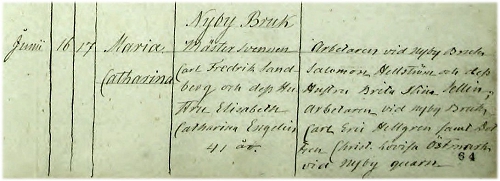 Nyby Bruk
Junii 16 17 Maria Mästersvennen Arbetaren vid Nyby Bruk
Catharina Carl Fredrik Sand Salomon Hellström och dess
berg och dess Hu Hustru Brita Stina Sellin
stru Elisabeth Arbetaren vid Nyby Bruk
Catharina Engelin Carl Eric Hellgren samt
41 år. Christ. Lovisa Östmark
vid Nyby quarn
64